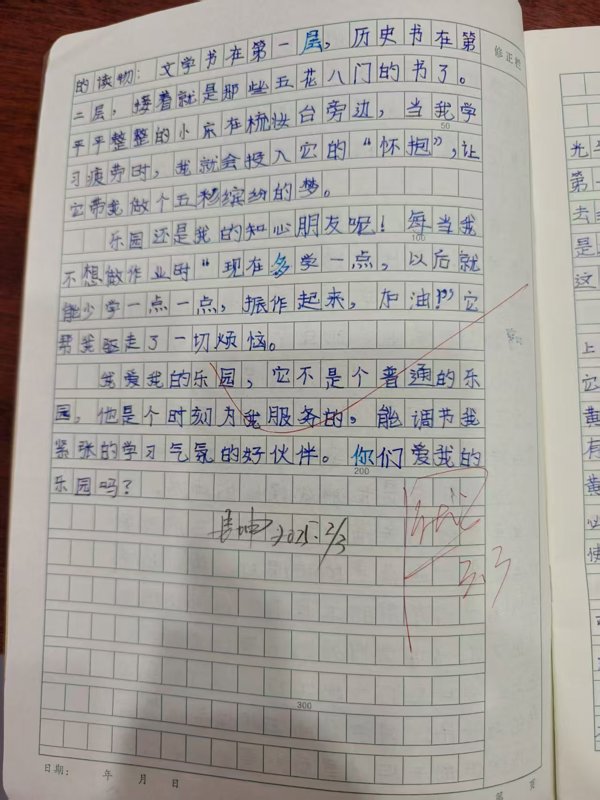 修正栏
的读物：文学书在第一层，历史书在第
二层，接着就是那些五花八门的书了。
平平整整的小床在梳妆台旁边，当我学
50
习疲劳时，我就会投入它的“怀抱”，让
它带我做个五彩缤纷的梦。
乐园还是我的知心朋友呢！每当我
100
不想做作业时“现在多学一点，以后就
能少学一点一点，振作起来，加油！”它
帮我驱走了一切烦恼。
我爱我的乐园，它不是个普通的乐
园，他是个时刻为我服务的，能调节我
紧张的学习气氛的好伙伴。你们爱我的
200
乐园吗？
2025.2/3
3.3
300
日期： 年 月 日
第 页
光
第一
去
是
这
上
它
黄
有
黄
使